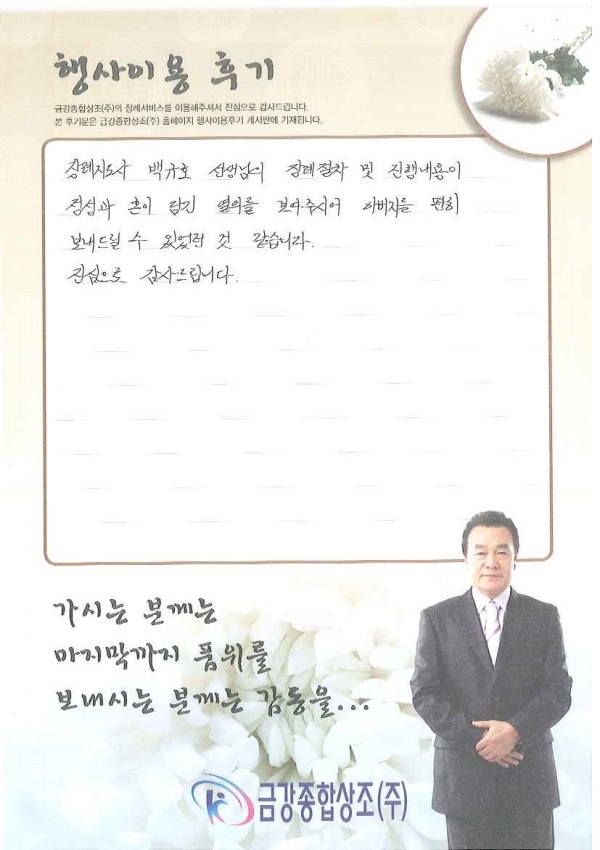 행사이용 후기
금강종합상조(주)의 장례서비스를 이용해주셔서 진심으로 감사드립니다.
본 후기문은 금강종합상조(주) 홈페이지 행사이용후기 게시판에 기재됩니다.
장례지도사 백규호 선생님의 장례절차 및 진행내용이
정성과 혼이 담긴 열의를 보여주시어 아버지를 편히
보내드릴 수 있었던 것 같습니다.
진심으로 감사드립니다.
가시는 분께는
마지막까지 품위를
보내시는 분께는 감동을...
금강종합상조(주)